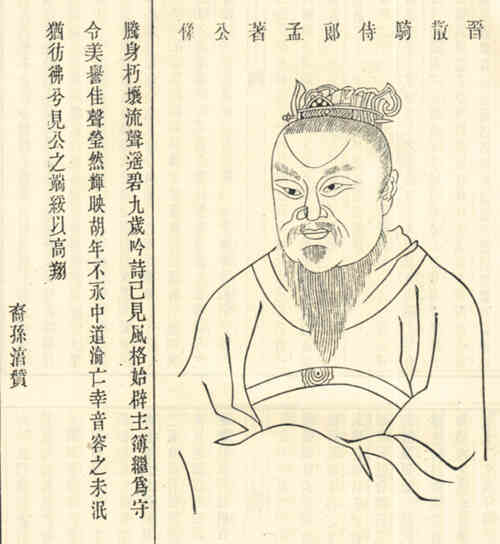 晉散騎侍郎孟著公像
騰身朽壤流聲遥碧九歲吟詩已見風格始辟主簿繼爲守
令美譽佳聲瑩然輝映胡年不永中道淪亡幸音容之未泯
猶彷彿兮見公之端綏以高翔
裔孫贊